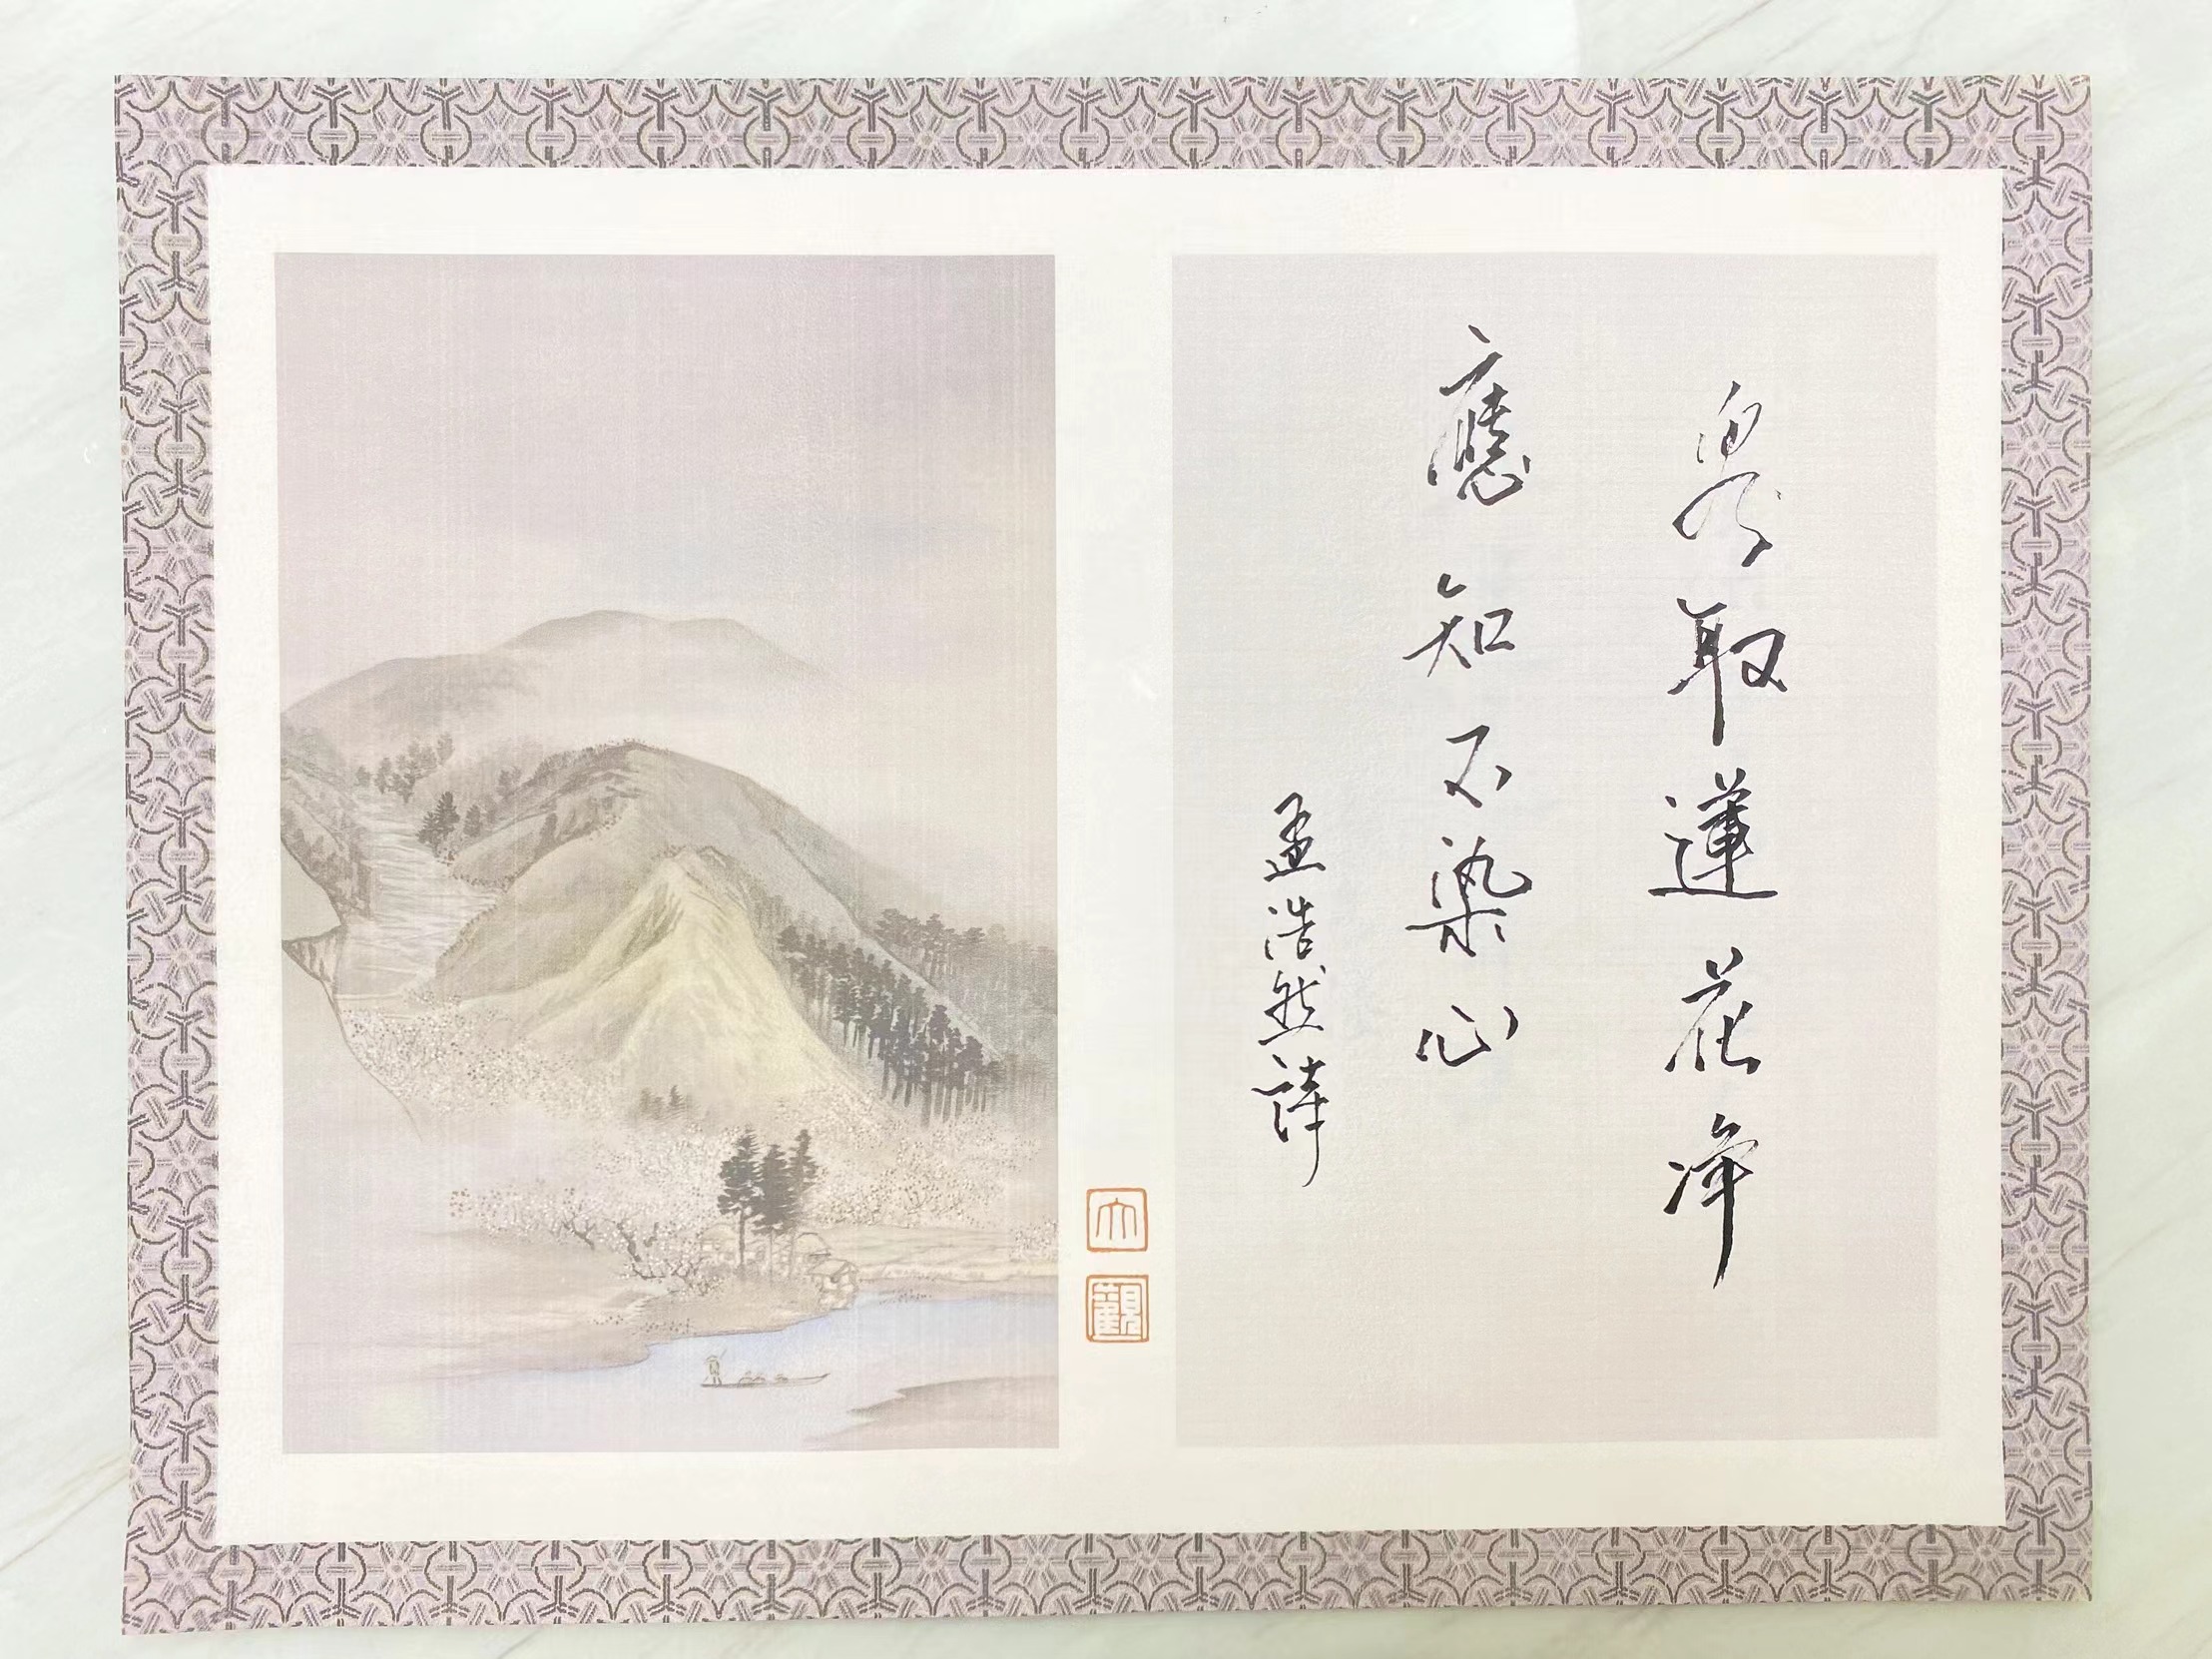 取蓮花净
應知不染心
孟浩然詩
大
觀